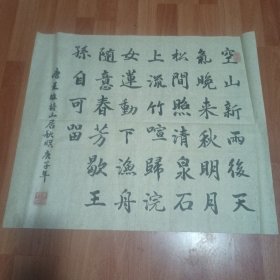 空山新雨後天
氣晚来秋明月
松間照清泉石
上流竹喧歸浣
女蓮動下漁舟
隨意春芳歇王
孫自可留
唐王維詩山居秋暝庚子年